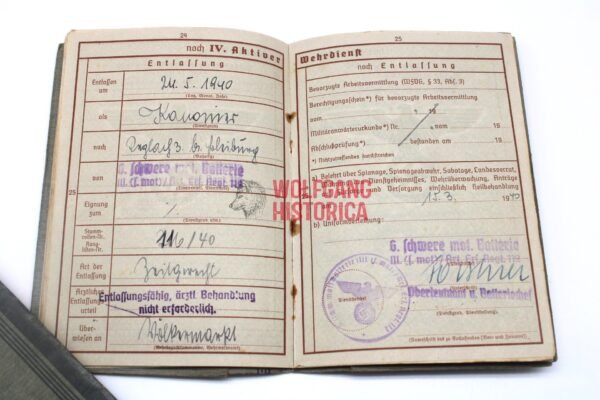 24
noch IV. Aktiver
Entlassung
Entlassen am
24. 5. 1940
(Tag, Monat, Jahr)
als
Kanonier
(Dienstgrad)
nach
b. Bleiburg
von
6. schwere mot. Batterie
III. (s. mot) / Art. Erf. Regt. 112
Eignung zum
Stammrollen-Nr.
Ranglisten-Nr.
116/40
Art der Entlassung
Zeitgerecht
Ärztliches Entlassungsurteil
Entlassungsfähig, ärztl. Behandlung
nicht erforderlich.
Überwiesen an
Völkermarkt
25
Wehrdienst
noch Entlassung
Bevorzugte Arbeitsvermittlung (WFVG, § 33, Abs. 3)
Berechtigungsschein*) für bevorzugte Arbeitsvermittlung
vom 19
(Militäranwärterurkunde*) Nr. vom 19
Abschlußprüfung*) bestanden am 19
*) Nichtzutreffendes durchstreichen
a) Belehrt über Spionage, Spionageabwehr, Sabotage, Landesverrat,
Dienstgeheimnisses, Wehrüberwachung, Anträge
und Versorgung einschließlich Heilbehandlung
am 15. 3. 1940
b) Uniformverleihung:
6. schwere mot. Batterie
III. (s. mot) / Art. Erf. Regt. 112
(Dienststelle)
Dienstsiegel
Oberleutnant u. Batteriechef
WOLFGANG
HISTORICA